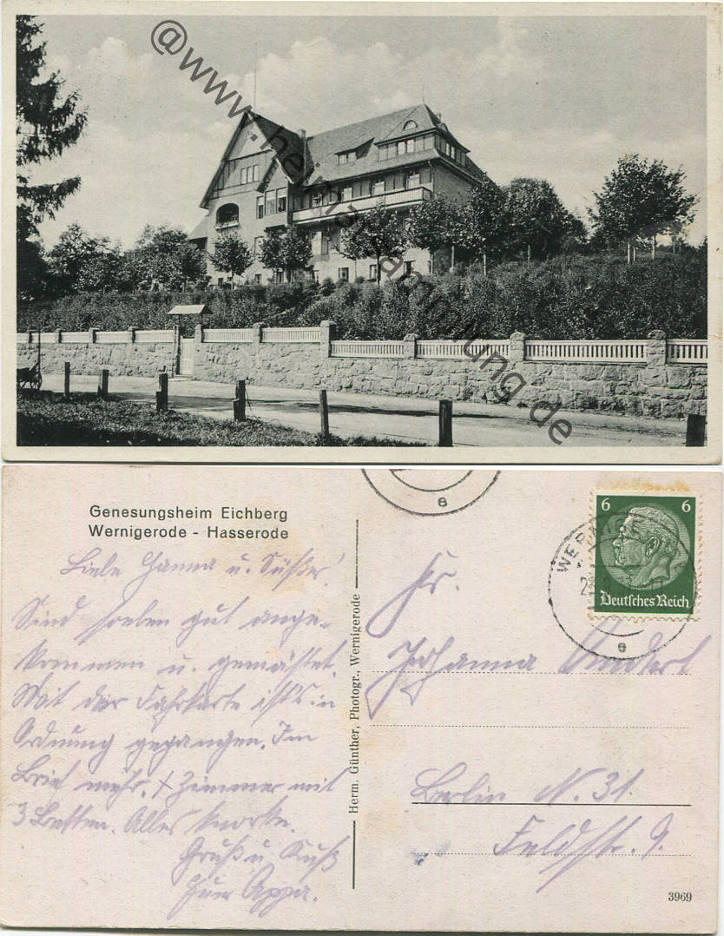 @www.heimatsammlung.de
Genesungsheim Eichberg
Wernigerode - Hasserode
Liebe Hanna u.
Sind soeben gut ange-
kommen u. gemästet.
Mit der Fahrkarte ist's in
Ordnung gegangen. Im
Brief mehr. + Zimmer mit
3 Betten. Alles
Gruß u. Kuß
Herm. Günther, Photogr., Wernigerode
6 6
Deutsches Reich
e
e
Fr.
Johanna
Berlin N. 31.
Feldstr. 9.
3969